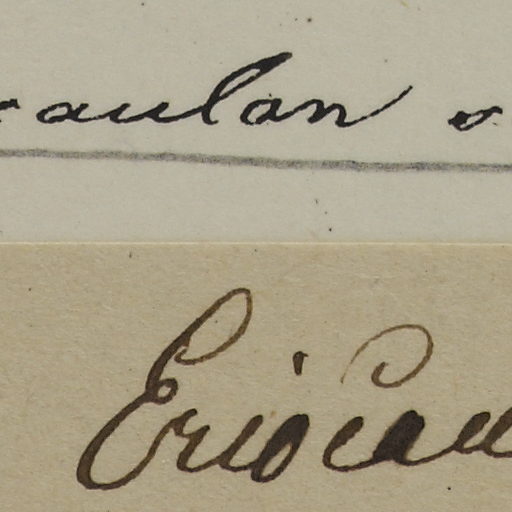 caulan o
Eriocau